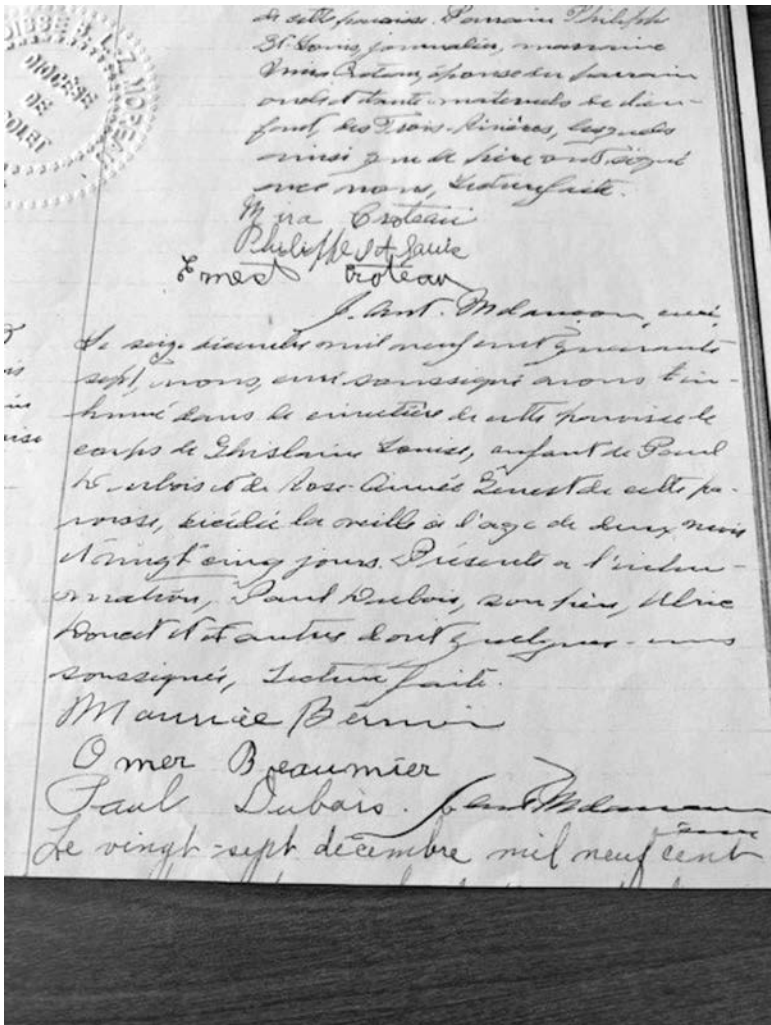 DIOCÈSE
DE
NICOLET
de cette paroisse. Parrain Philippe
St-Louis, journalier, marraine
Mira Croteau, épouse du parrain
oncle et tante maternels de l'en-
fant, des Trois-Rivières, lesquels
ainsi que le père ont signé
avec nous, Lecture faite.
Mira Croteau
Philippe St Louis
Ernest Croteau
J. Ant. Melançon, curé,
Le seize décembre mil neuf cent quarante
sept, nous, curé soussigné avons in-
humé dans le cimetière de cette paroisse le
corps de Ghislaine Louise, enfant de Paul
Dubois et de Rose-Aimée Genest de cette pa-
roisse, décédée la veille à l'âge de deux mois
et vingt cinq jours. Présents à l'inhu-
mation, Paul Dubois, son père, Ulric
Doucet et d'autres dont quelques-uns
soussignés, Lecture faite.
Maurice Bernier
Omer Beaumier
Paul Dubois. J. Ant Melançon
curé
Le vingt-sept décembre mil neuf cent